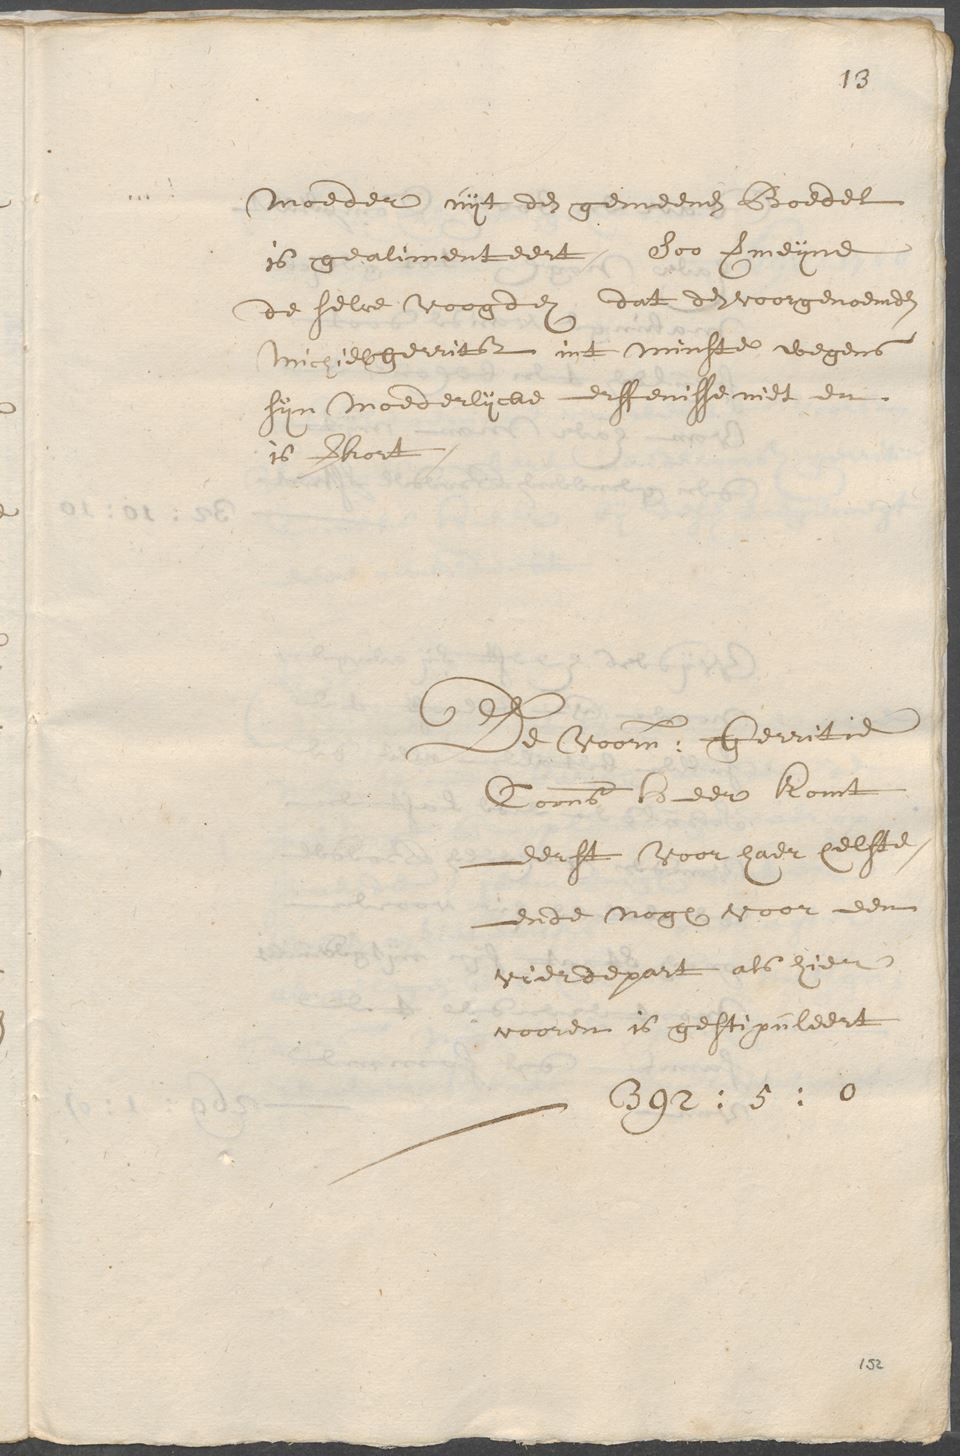 13
moeder uijt den gemeenen Boedel
is gealimenteert / Soo Emeijne
de selve voogden dat den voorgenoemden
Michiel Gerritsz int minste wegens
sijn Moederlijcke erffenisse niet en
is
De voorn: Gerritie
Coons komt
eerst voor haer helfte /
ende nogh voor een
vierdepart als hier
vooren is gestipuleert
392 : 5 : 0
152